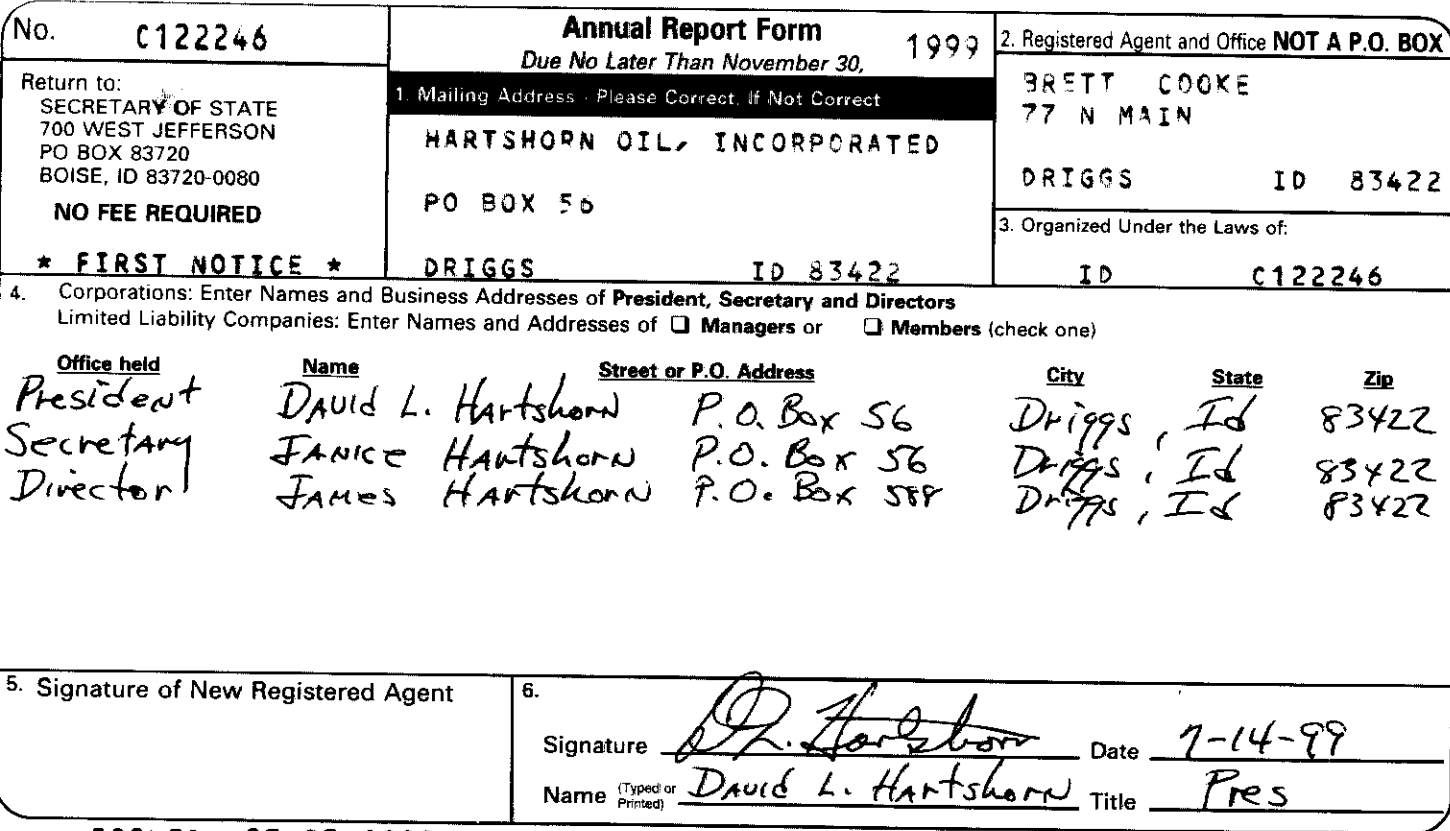 No. C122246
Return to:
SECRETARY OF STATE
700 WEST JEFFERSON
PO BOX 83720
BOISE, ID 83720-0080
NO FEE REQUIRED
* FIRST NOTICE *
Annual Report Form 1999
Due No Later Than November 30,
1. Mailing Address - Please Correct, If Not Correct
HARTSHORN OIL, INCORPORATED
PO BOX 56
DRIGGS ID 83422
2. Registered Agent and Office NOT A P.O. BOX
BRETT COOKE
77 N MAIN
DRIGGS ID 83422
3. Organized Under the Laws of:
ID C122246
4. Corporations: Enter Names and Business Addresses of President, Secretary and Directors
Limited Liability Companies: Enter Names and Addresses of ❑ Managers or ❑ Members (check one)
Office held Name Street or P.O. Address City State Zip
President David L. Hartshorn P.O. Box 56 Driggs, Id 83422
Secretary Janice Hartshorn P.O. Box 56 Driggs, Id 83422
Director James Hartshorn P.O. Box 588 Driggs, Id 83422
5. Signature of New Registered Agent
6.
Signature D L. Hartshorn Date 7-14-99
Name (Typed or Printed) David L. Hartshorn Title Pres